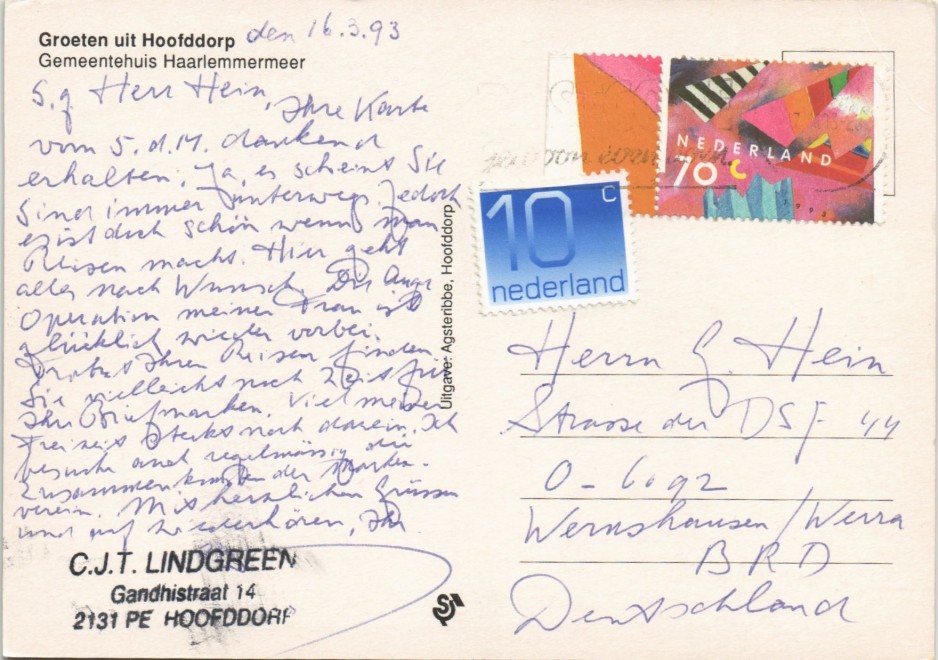 Groeten uit Hoofddorp
Gemeentehuis Haarlemmermeer
den 16.3.93
S.g Herr Hein, Ihre Karte
vom 5. d.M. dankend
erhalten. Ja, es scheint Sie
sind immer unterwegs. Jedoch
es ist doch schön wenn man
Reisen macht. Hier geht
alles nach Wunsch. Die Auge
Operation meiner Frau ist
glücklich wieder vorbei.
Trotz Ihren Reisen finden
Sie vielleicht noch Zeit für
Ihre Briefmarken. Viel meiner
Freizeit steckt noch darein. Ich
besuche auch regelmässig die
Zusammenkünften der Marken-
verein. Mit herzlichen Grüssen
und auf Wiederhören, Ihr
C.J.T. LINDGREEN
Gandhistraat 14
2131 PE HOOFDDORP
Uitgave: Agsteribbe, Hoofddorp
NEDERLAND
70 c
1993
10 c
nederland
Herrn G. Hein
Strasse der DSF 44
O-6092
Wernshausen/Werra
BRD
Deutschland